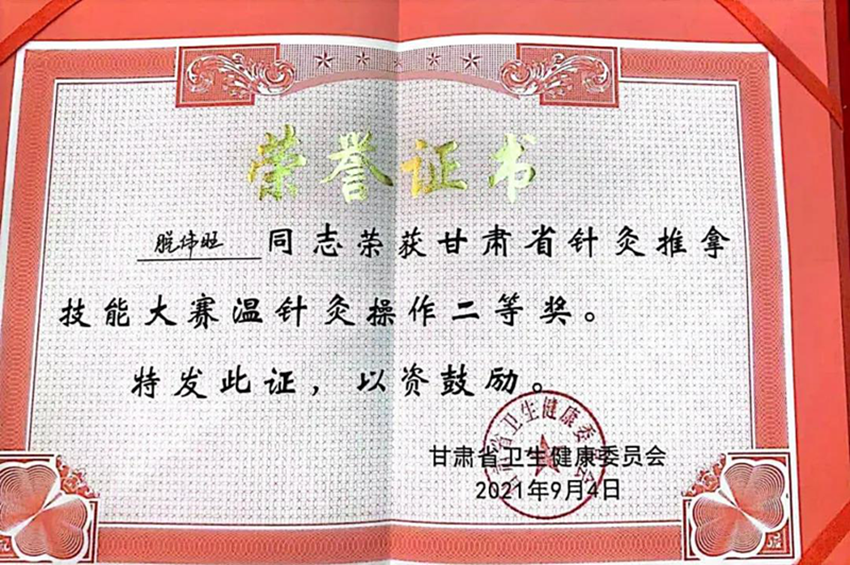 荣誉证书
脱伟旺同志荣获甘肃省针灸推拿
技能大赛温针灸操作二等奖。
特发此证，以资鼓励。
甘肃省卫生健康委员会
甘肃省卫生健康委员会
2021年9月4日